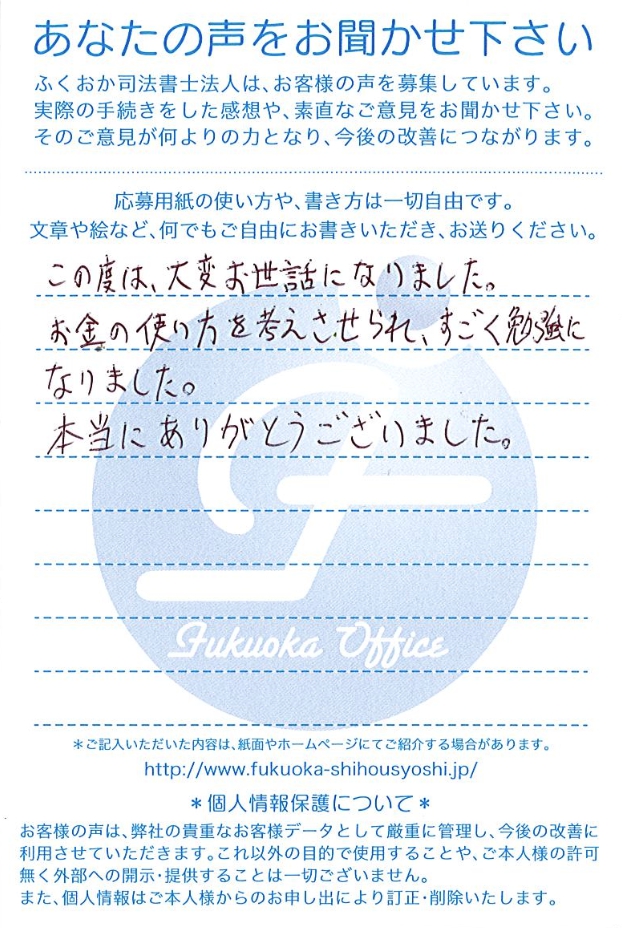 あなたの声をお聞かせ下さい
ふくおか司法書士法人は、お客様の声を募集しています。
実際の手続きをした感想や、素直なご意見をお聞かせ下さい。
そのご意見が何よりの力となり、今後の改善につながります。
応募用紙の使い方や、書き方は一切自由です。
文章や絵など、何でもご自由にお書きいただき、お送りください。
この度は、大変お世話になりました。
お金の使い方を考えさせられ、すごく勉強に
なりました。
本当にありがとうございました。
Fukuoka Office
*ご記入いただいた内容は、紙面やホームページにてご紹介する場合があります。
http://www.fukuoka-shihousyoshi.jp/
*個人情報保護について*
お客様の声は、弊社の貴重なお客様データとして厳重に管理し、今後の改善に
利用させていただきます。これ以外の目的で使用することや、ご本人様の許可
無く外部への開示・提供することは一切ございません。
また、個人情報はご本人様からのお申し出により訂正・削除いたします。